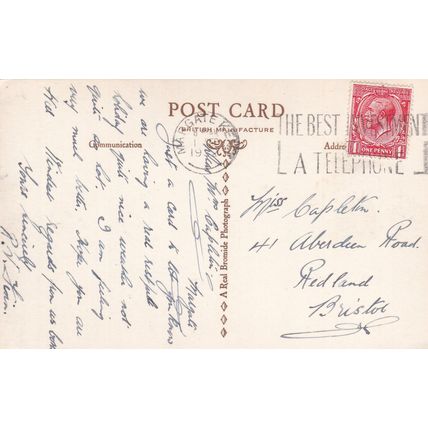 POST CARD
BRITISH MANUFACTURE
Communication
Addre
MARGATE
19
THE BEST INVESTMENT
A TELEPHONE
ONE PENNY
A Real Bromide Photograph
Miss Capleton.
41 Aberdeen Road.
Redland
Bristol
Margate
Just a card to let you know
we are having a real restful
holiday quite nice weather not
quite so hot. I am feeling
very much better. Hope you are
Kindest Regards from us both
Yours sincerely